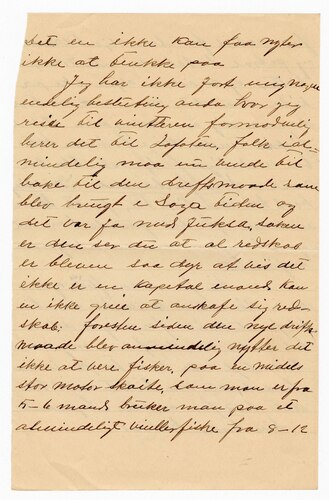 Det en ikke kan faa nytter
ikke at tenkke paa
Jeg har ikke fort mig nogen
endelig bestutning enda hvor jeg
reise til vintteren formodentlig
berer det til Lofoten, folk
mindelig maa nu vende til
bake til den driftsmaade som
blev brugt i Saga tiden og
det var ja med Juksa, saken
er den ser du at al redskab
er bleven saa dyr at vis det
ikke er en kapetal mand kan
en ikke greie at anskafe sig red-
skab. foresten siden den nye drifts
maade blev anmindelig nytter det
ikke at vere fisker, paa en middels
stor motor skøite, som man er fra
5-6 mand bruker man paa et
almindeligt vintterfiske fra 8-12